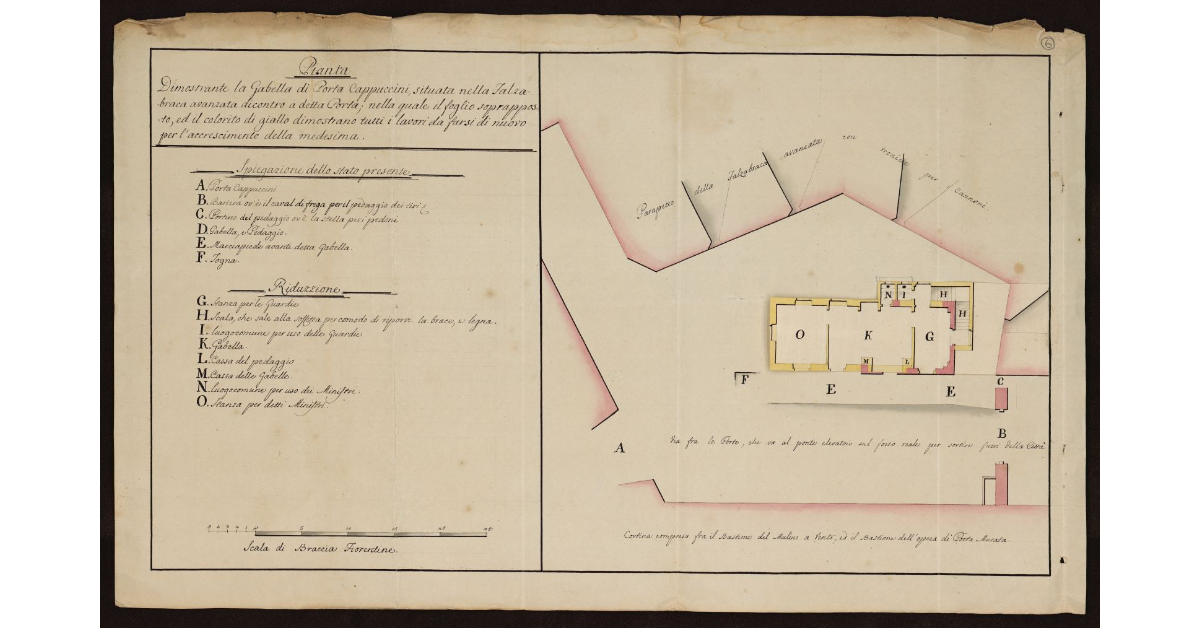 6
Pianta
Dimostrante la Gabella di Porta Cappuccini, situata nella Falza-
braca avanzata dicontro a detta Porta; nella quale il foglio soprappos-
to, ed il colorito di giallo dimostrano tutti i lavori da farsi di nuovo
per l'accrescimento della medesima.
Spiegazione dello stato presente
A. Porta Cappuccini
B. Barriera ov'è il caval di frega per il pedaggio dei
C. Portino del pedaggio ov'è la stella pei pedoni
D. Gabella, e Pedaggio.
E. Marciapiede avanti detta Gabella.
F. Fogna.
Riduzzione
G. Stanza per le Guardie
H. Scala, che sale alla soffitta per comodo di riporre la brace, e legna.
I. Luogo comune per uso delle Guardie
K. Gabella.
L. Cassa del pedaggio
M. Cassa delle Gabelle
N. Luogo comune per uso dei Ministri.
O. Stanza per detti Ministri.
Scala di Braccia Fiorentine.
Parapetto della Falzabraca avanzata con per i Cannoni
N I H
H
O K G
M L
F E E C
B
A
Via fra le Porte, che va al ponte elevatoio sul fosso reale per sortire fuori della Città
Cortina compresa fra il Bastione del Mulino a Vento, ed il Bastione dell'opera di Porta Murata